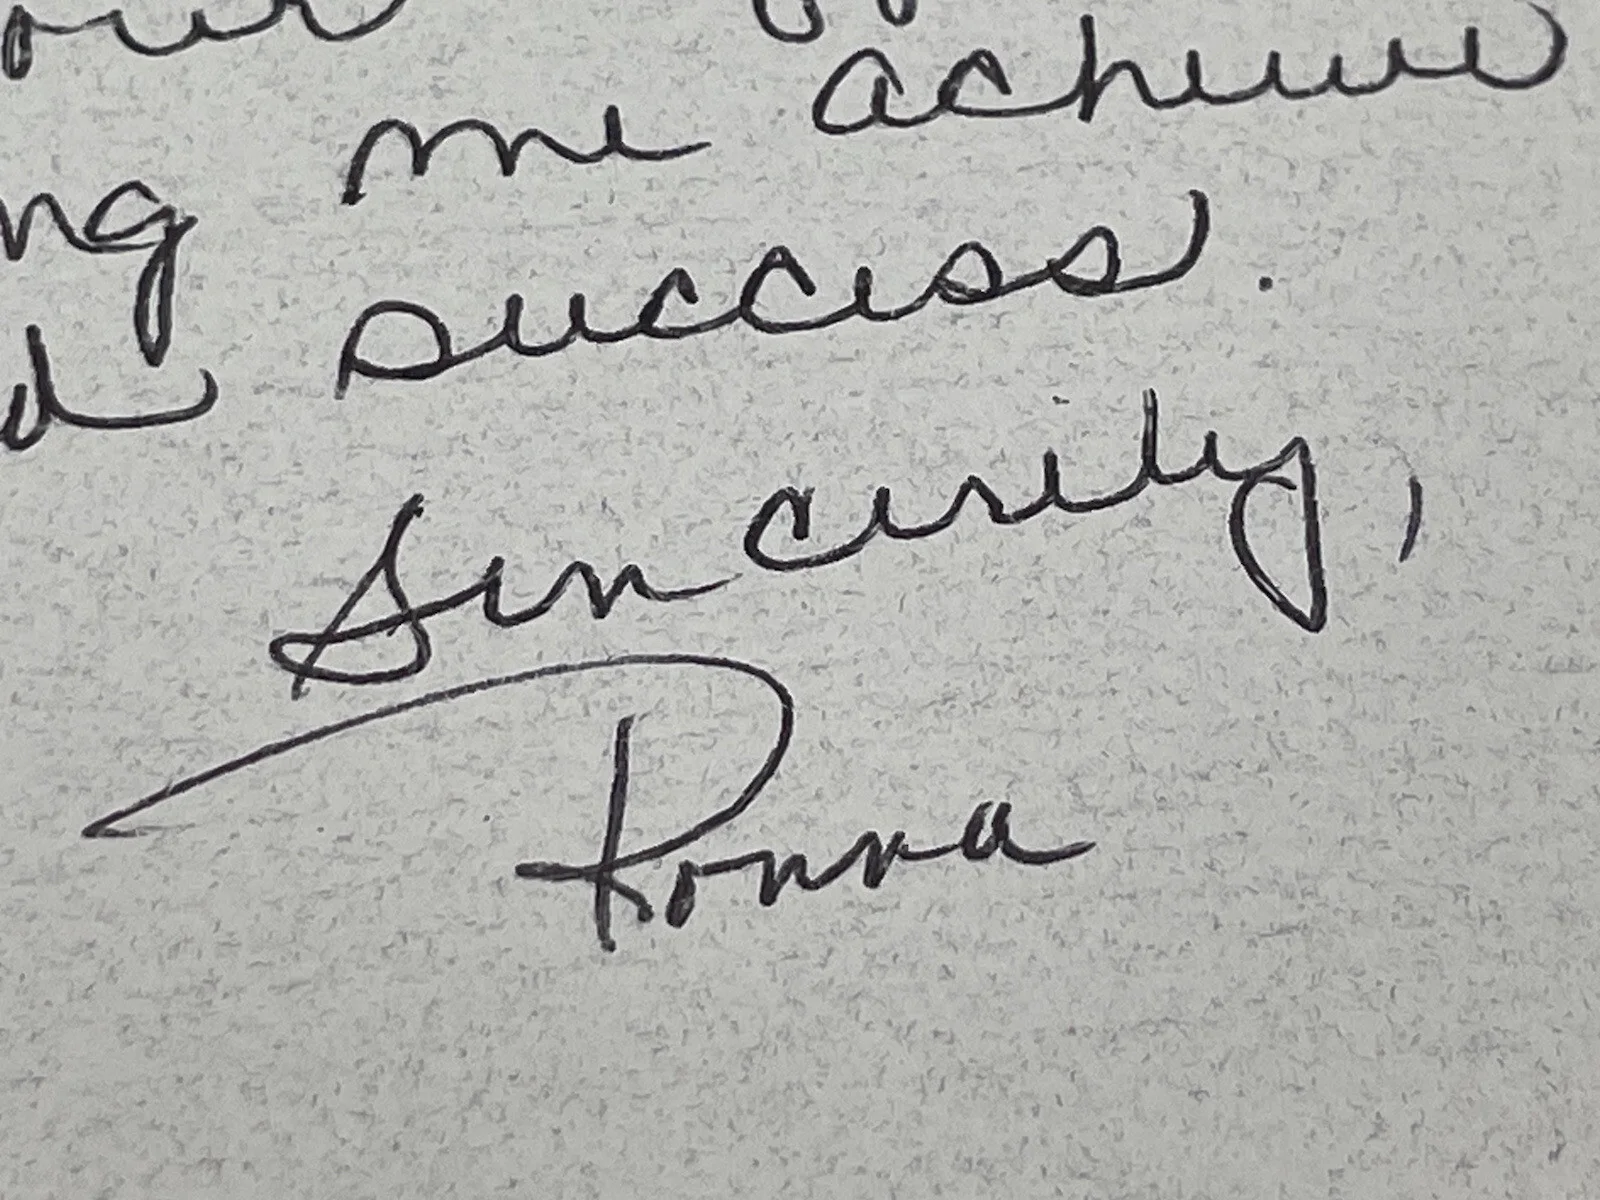 me achieve
success.
Sincerely,
Ronna